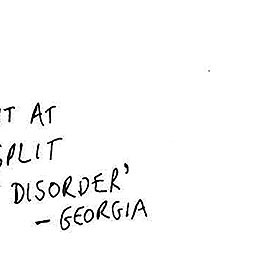 AT
SPLIT
DISORDER'
- GEORGIA